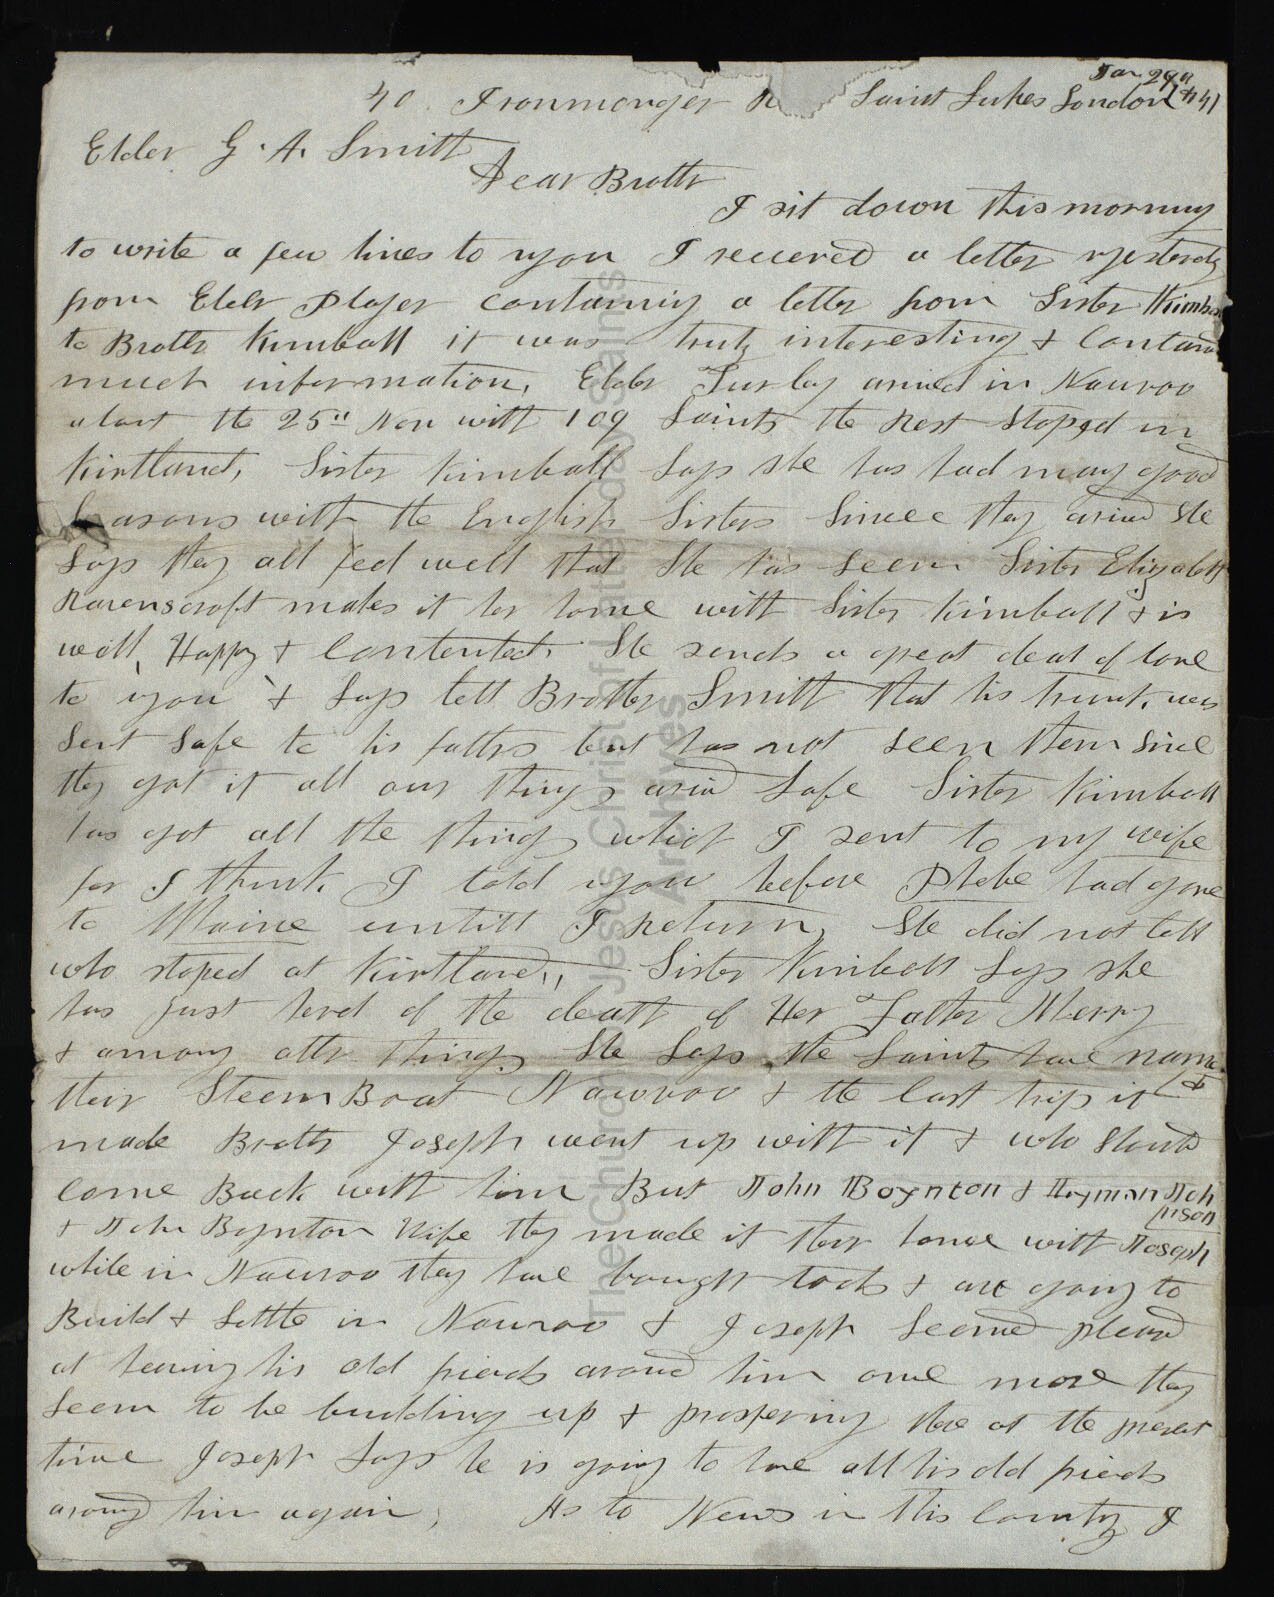 Jan 29th
40 Ironmonger R Saint Lukes London 1841
Elder G. A. Smith
Dear Brother
I sit down this morning
to write a few lines to you I received a letter yesterdy
from Elder Player containing a letter from Sister Kimbal
to Brother Kimball it was truly interesting & containd
much information, Elder Turley arived in Nauvoo
about the 25th Nov with 109 Saints the Rest Stoped in
Kirtland, Sister Kimball Says she has had many good
Seasons with the English Sisters Since they arived She
Says they all feel well that She has seen Sister Elizabeth
Ravenscroft makes it her home with Sister Kimball & is
well, Happy & Contented. She sends a great deal of love
to you & Says tell Brother Smith that his trunk was
Sent Safe to his fathers but has not seen them Since
they got it all our things arivd Safe Sister Kimball
has got all the things which I sent to my wife
for I think I told you before Phebe had gone
to Maine untill I return, She did not tell
who stoped at Kirtland,, Sister Kimball Says she
has just herd of the death of Her Father Merry
& among other things She Says the Saints have name
d
their Steem Boat Nauvoo & the last trip it
made Brother Joseph went up with it & who should
Come Back with him But John Boynton & Lyman Joh
nson
& John Boynton Wife they made it their home with Joseph
while in Nauvoo they have bought lots & are going to
Build & Settle in Nauvoo & Joseph Seemed pleased
at having his old friends around him once more they
Seem to be building up & prospering there at the present
time Joseph Says he is going to have all his old friends
around him again, As to News in this Country I
The Church of Jesus Christ of Latter-day Saints
Archives